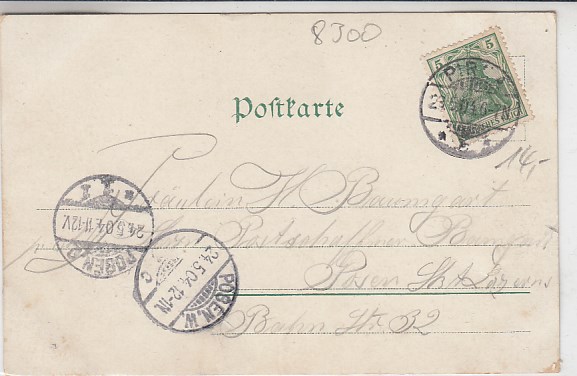 8300
5 5
PIR
DEUTSCHES REICH
Postkarte
14,-
Fräulein H Baumgart
Postschaffner Baumgart
Posen St. Lazarus
Bahn Str. 32
24.5.04.11-12V.
POSEN
24.5.04.12-1N.
POSEN.W.
C